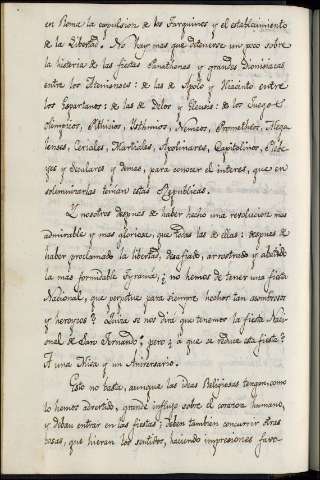 en Roma la expulsion de los Tarquinos y el establecimiento
de la libertad. No hay mas que detenerse un poco sobre
la historia de las fiestas Panathenas y grandes Dionisiacas
entre los Atenienses: de las de Apolo y Hiacinto entre
los Espartanos: de las de Delos y Eleusis: de los Juegos
Olimpicos, Pithicos, Isthmios, Nemeos, Prometheos, Mega
lenses, Ceriales, Marciales, Apolinares, Capitolinos, Plebe
yos y Seculares y demas, para conocer el interes, que en
solemnizarlas tenian estas Republicas.
Y nosotros despues de haber hecho una revolucion mas
admirable y mas gloriosa, que todas las de ellas: despues de
haber proclamado la libertad, desafiado, arrostrado y abatido
la mas formidable tyrania, ¿no hemos de tener una fiesta
Nacional, que perpetue para siempre hechos tan asombrosos
y heroycos? Quiza se nos dirá que tenemos la fiesta Naci
onal de San Fernando; pero ¿á que se reduce esta fiesta?
A una Misa y un Aniversario.
Esto no basta, aunque las ideas Religiosas tengan, como
lo hemos advertido, grande influjo sobre el corazon humano,
y deban entrar en las fiestas; deben tambien concurrir otras
cosas, que hieran los sentidos, haciendo impresiones favo